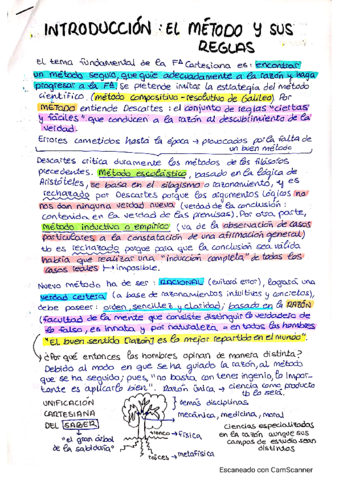 INTRODUCCIÓN: EL MÉTODO Y SUS
REGLAS
El tema fundamental de la Fª Cartesiana es: encontrar
un método seguro, que guíe adecuadamente a la razón y haga
progresar a la Fª. Se pretende imitar la estrategia del método
científico. (método compositivo-resolutivo de Galileo). Por
MÉTODO entiende Descartes: el conjunto de reglas "ciertas
y fáciles" que conducen a la razón al descubrimiento de la
verdad.
Errores cometidos hasta la época → provocados por la falta de
un buen método
Descartes critica duramente los métodos de los filósofos
precedentes. Método escolástico, basado en la lógica de
Aristóteles, se basa en el silogismo o razonamiento, y es
rechazado por Descartes porque los argumentos lógicos no
nos dan ninguna verdad nueva (verdad de la conclusión:
contenida en la verdad de las premisas). Por otra parte,
método inductivo o empírico (va de la observación de casos
particulares a la constatación de una afirmación general)
lo es rechazado porque para que la conclusión sea válida
habría que realizar una "inducción completa" de todos los
casos reales → imposible.
Nuevo método ha de ser: RACIONAL (evitará error), logrará una
verdad certera (a base de razonamientos intuitivos y concretos),
debe poseer: orden, sencillez y claridad; basado en la RAZÓN
(facultad de la mente que consiste distinguir lo verdadero de
lo falso, es innata y por naturaleza → en todos los hombres
"El buen sentido (razón) es lo mejor repartido en el mundo".
→ ¿Por qué entonces los hombres opinan de manera distinta?
Debido al modo en que se ha guiado la razón, al método
que se ha seguido; pues, "no basta con tener ingenio, lo impor-
tante es aplicarlo bien". Razón única → ciencia como producto
UNIFICACIÓN
CARTESIANA
DEL SABER
"el gran árbol
de la sabiduría"
→ demás disciplinas
mecánica, medicina, moral
tronco → física
raíces → metafísica
ciencias especializadas
en la razón aunque sus
campos de estudio sean
distintos
Escaneado con CamScanner